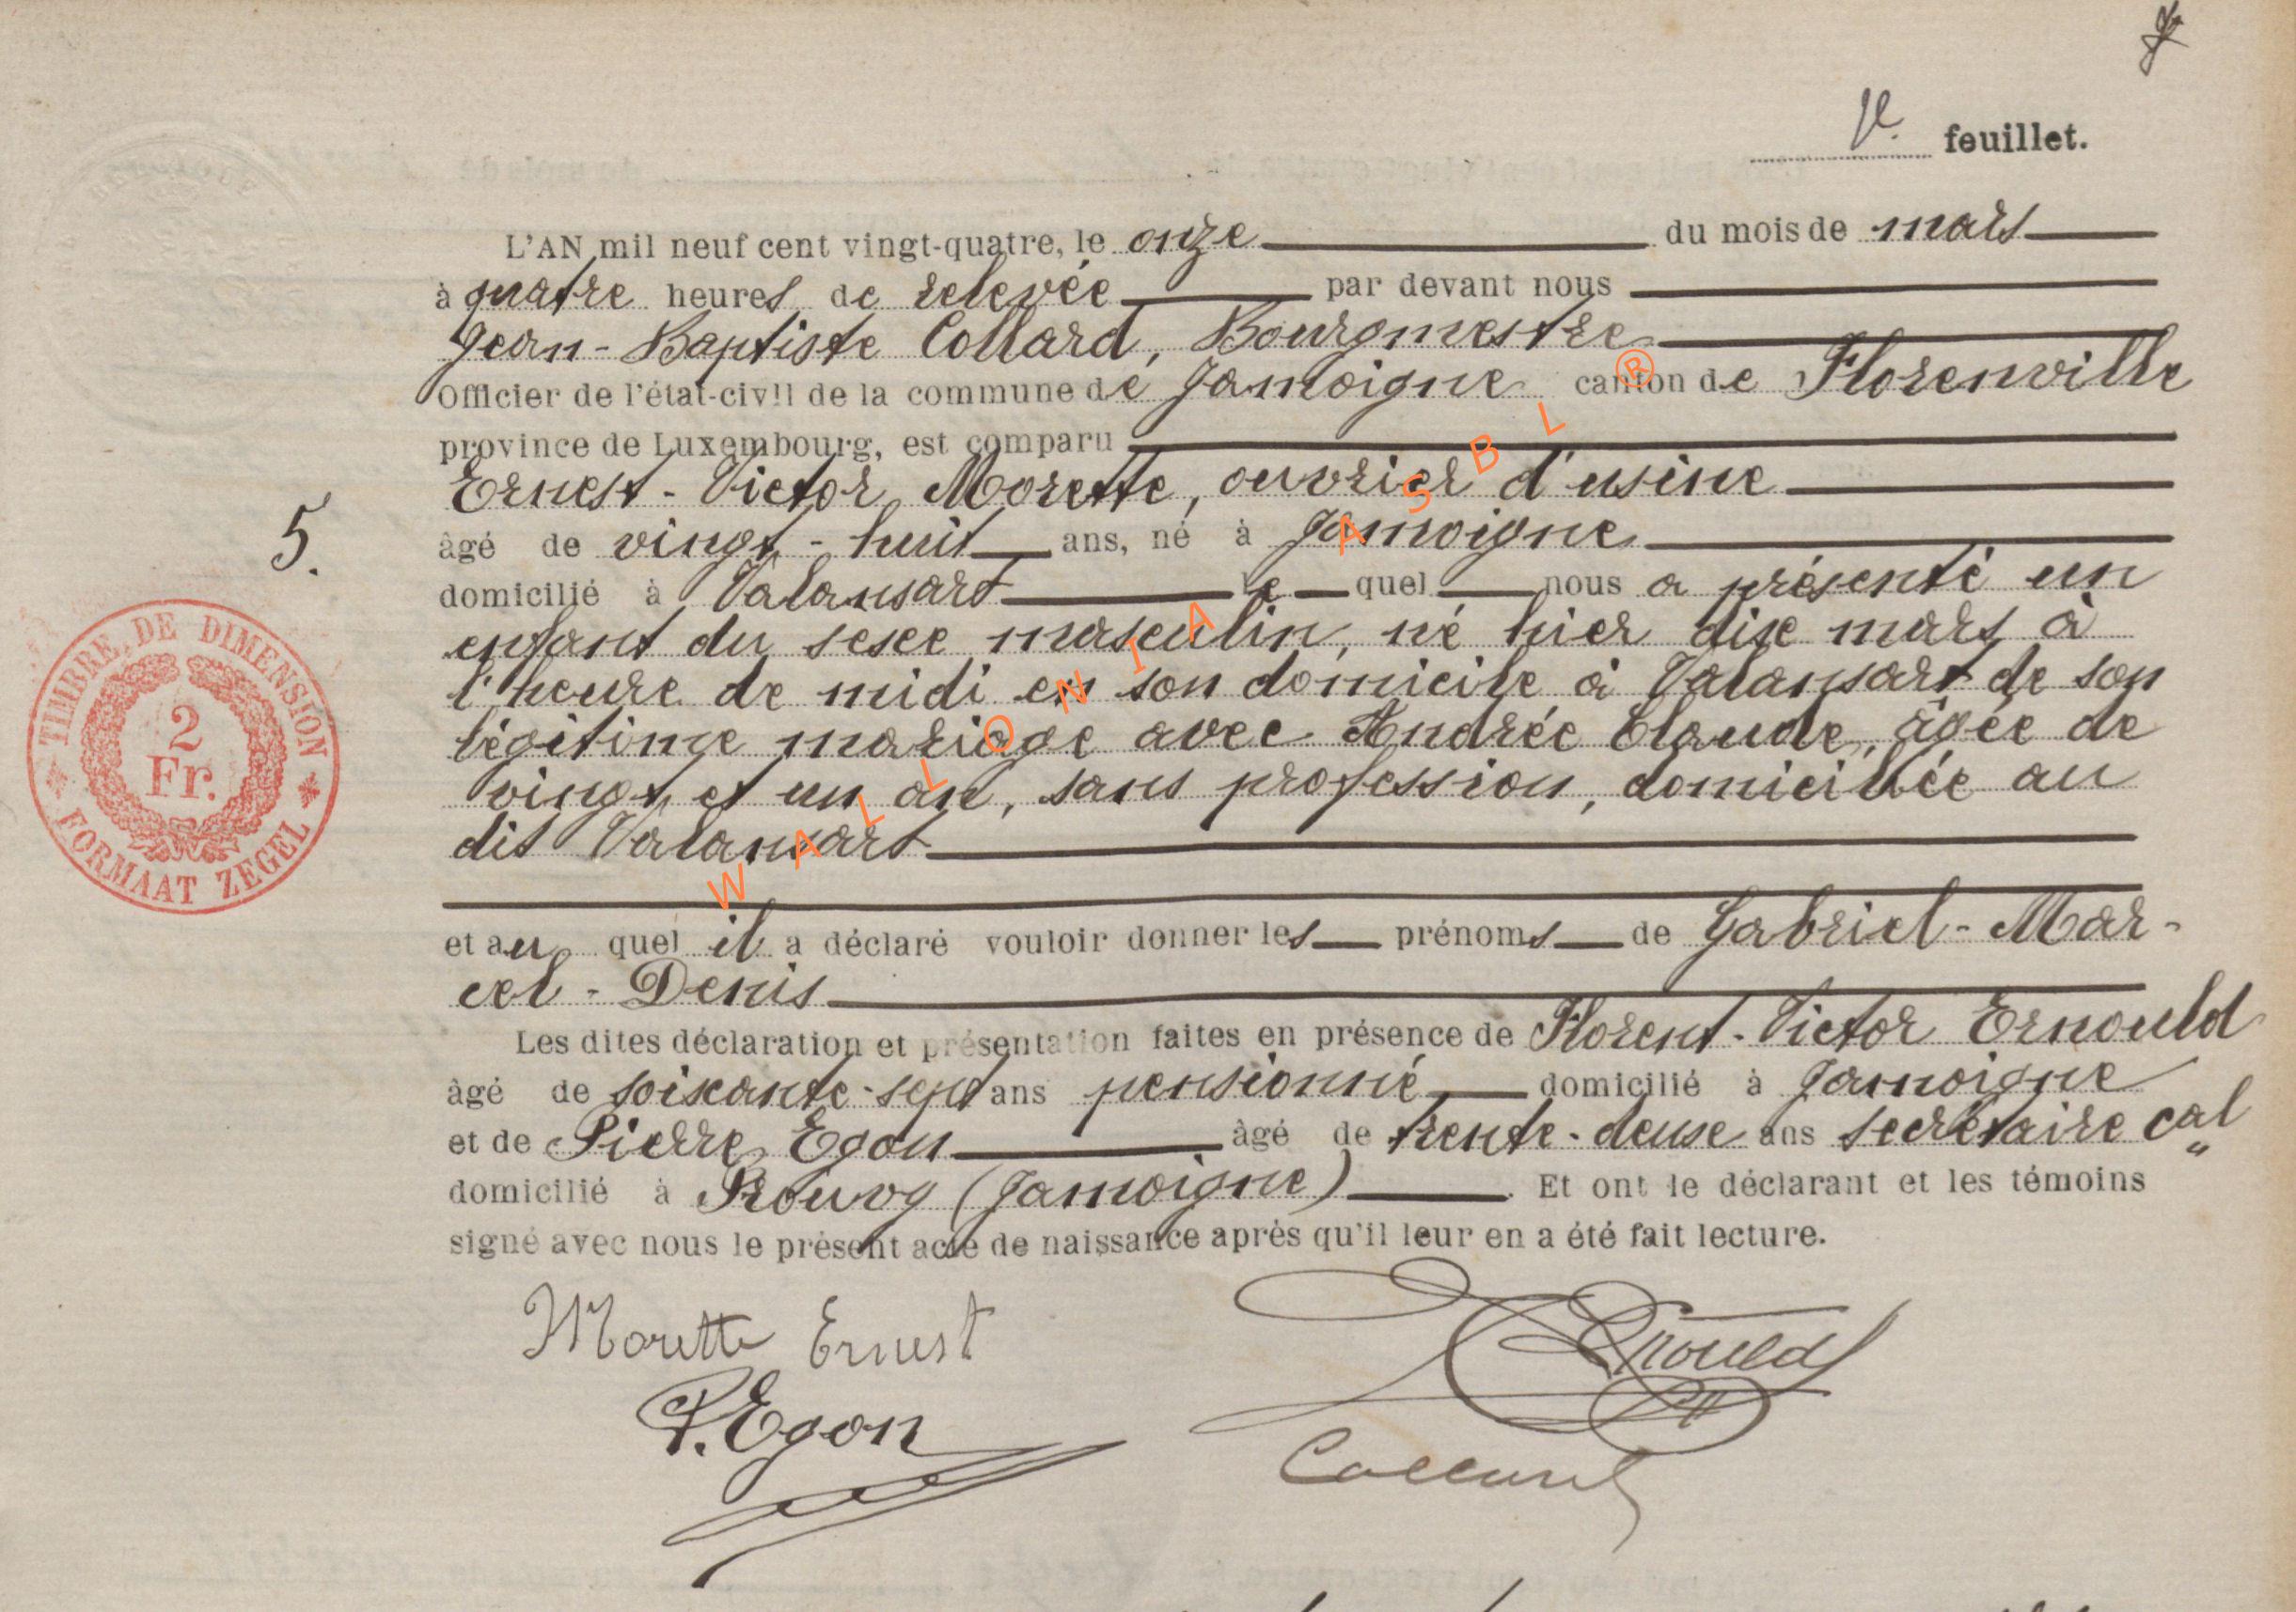 Ve. feuillet.
L'AN mil neuf cent vingt-quatre, le onze du mois de mars
à quatre heures de relevée par devant nous
Jean-Baptiste Collard, Bourgmestre
Officier de l'état-civil de la commune de Jamoigne canton de Florenville
province de Luxembourg, est comparu
Ernest-Victor Morette, ouvrier d'usine
âgé de vingt-huit ans, né à Jamoigne
domicilié à Valansart lequel nous a présenté un
enfant du sexe masculin, né hier dix mars à
l'heure de midi en son domicile à Valansart de son
légitime mariage avec Andrée Claude, âgée de
vingt et un an, sans profession, domiciliée au
dit Valansart
et au quel il a déclaré vouloir donner les prénoms de Gabriel-Mar-
cel-Denis
Les dites déclaration et présentation faites en présence de Florent-Victor Ernould
âgé de soixante-sept ans pensionné domicilié à Jamoigne
et de Pierre Egon âgé de trente-deux ans secrétaire cal
domicilié à Prouvy (Jamoigne). Et ont le déclarant et les témoins
signé avec nous le présent acte de naissance après qu'il leur en a été fait lecture.
5.
TIMBRE DE DIMENSION
2
Fr.
FORMAAT ZEGEL
WALLONIA ASBL ®
Morette Ernest
Ernould
P. Egon
Collard